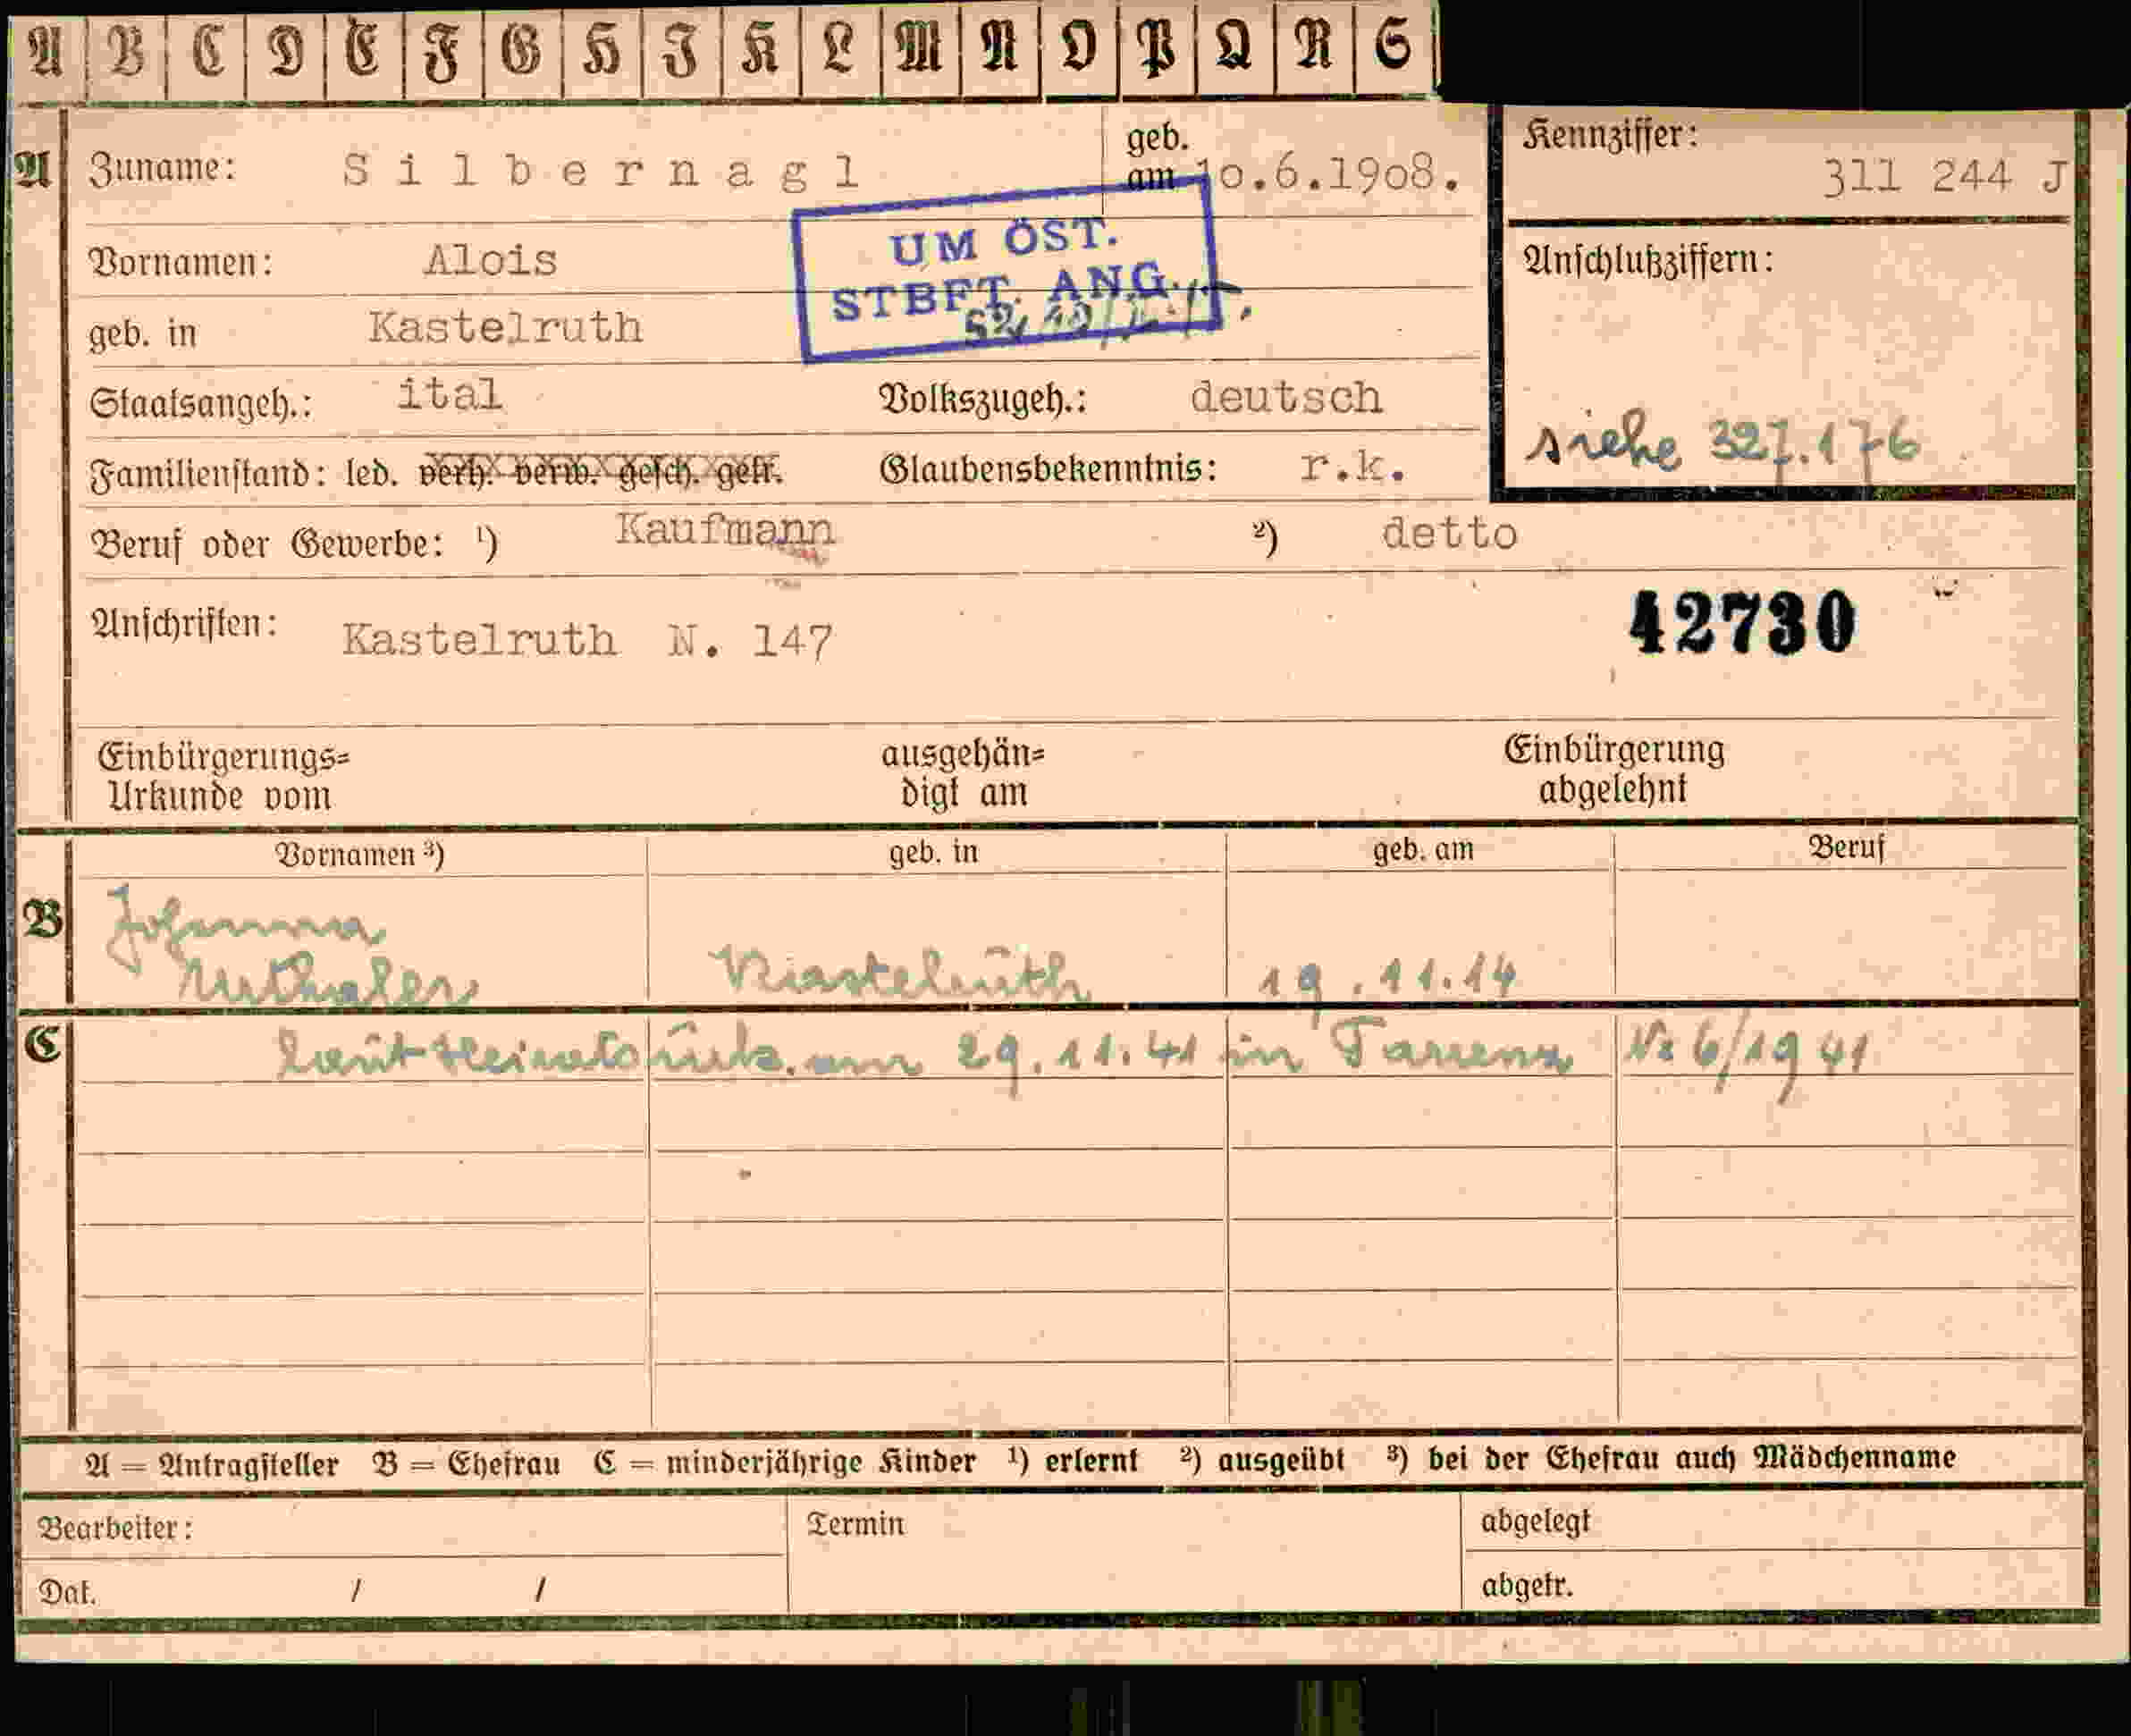 A B C D E F G H J K L M N O P Q R S
A Zuname: Silbernagl geb. am 10.6.1908. Kennziffer: 311 244 J
UM ÖST. STBFT. ANG.
Vornamen: Alois Anschlußziffern:
geb. in Kastelruth
Staatsangeh.: ital Volkszugeh.: deutsch
siehe 327.176
Familienstand: led. verh. verw. gesch. getr. Glaubensbekenntnis: r.k.
Beruf oder Gewerbe: ¹) Kaufmann ²) detto
42730
Anschriften: Kastelruth N. 147
Einbürgerungs= ausgehän= Einbürgerung
Urkunde vom digt am abgelehnt
Vornamen ³) geb. in geb. am Beruf
B Johanna
Kastelruth 19.11.14
C laut Heiratsurk. am 29.11.41 in Tarrenz No 6/1941
A = Antragsteller B = Ehefrau C = minderjährige Kinder ¹) erlernt ²) ausgeübt ³) bei der Ehefrau auch Mädchenname
Bearbeiter: Termin abgelegt
Dat. / / abgetr.